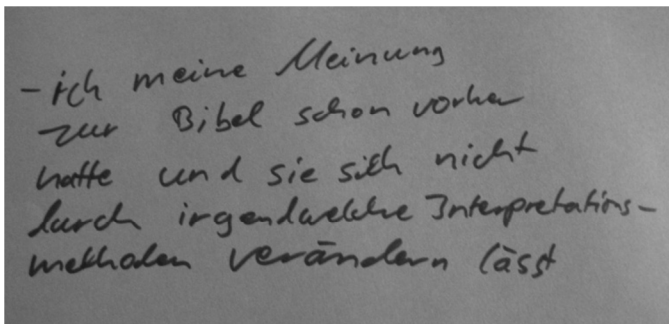 - ich meine Meinung
zur Bibel schon vorher
hatte und sie sich nicht
durch irgendwelche Interpretations-
methoden verändern lässt